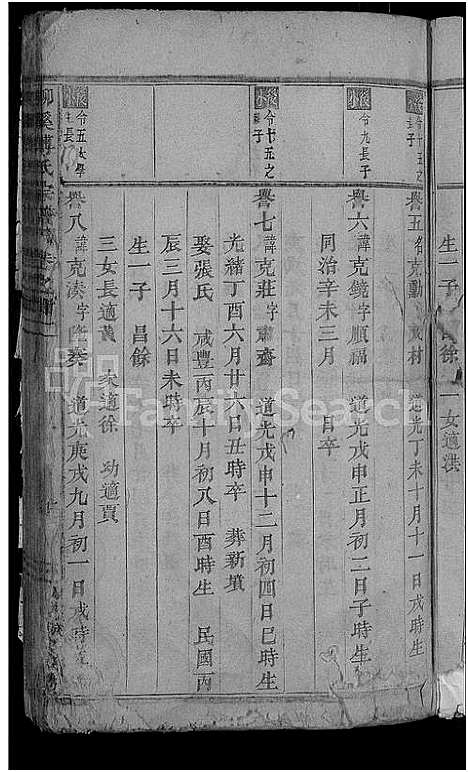 生一子 徐 一女適洪
令十五之
子
譽五名克勤 村 道光丁未十月十一日戌時生
令九長子
譽六諱克鏡字順福 道光戊申正月初二日子時生
同治辛未三月 日卒
令十五之
子
譽七諱克莊字肅齋 道光戊申十二月初四日巳時生
光緒丁酉六月廿六日丑時卒 葬新墳
娶張氏 咸豐丙辰十月初八日酉時生 民國丙
辰三月十六日未時卒
生一子 昌餘
三女長適黃 次適徐 幼適賈
令五太學
生長
譽八諱克湊字隆 道光庚戌九月初一日戌時
柳溪傅氏宗譜
FamilySearch